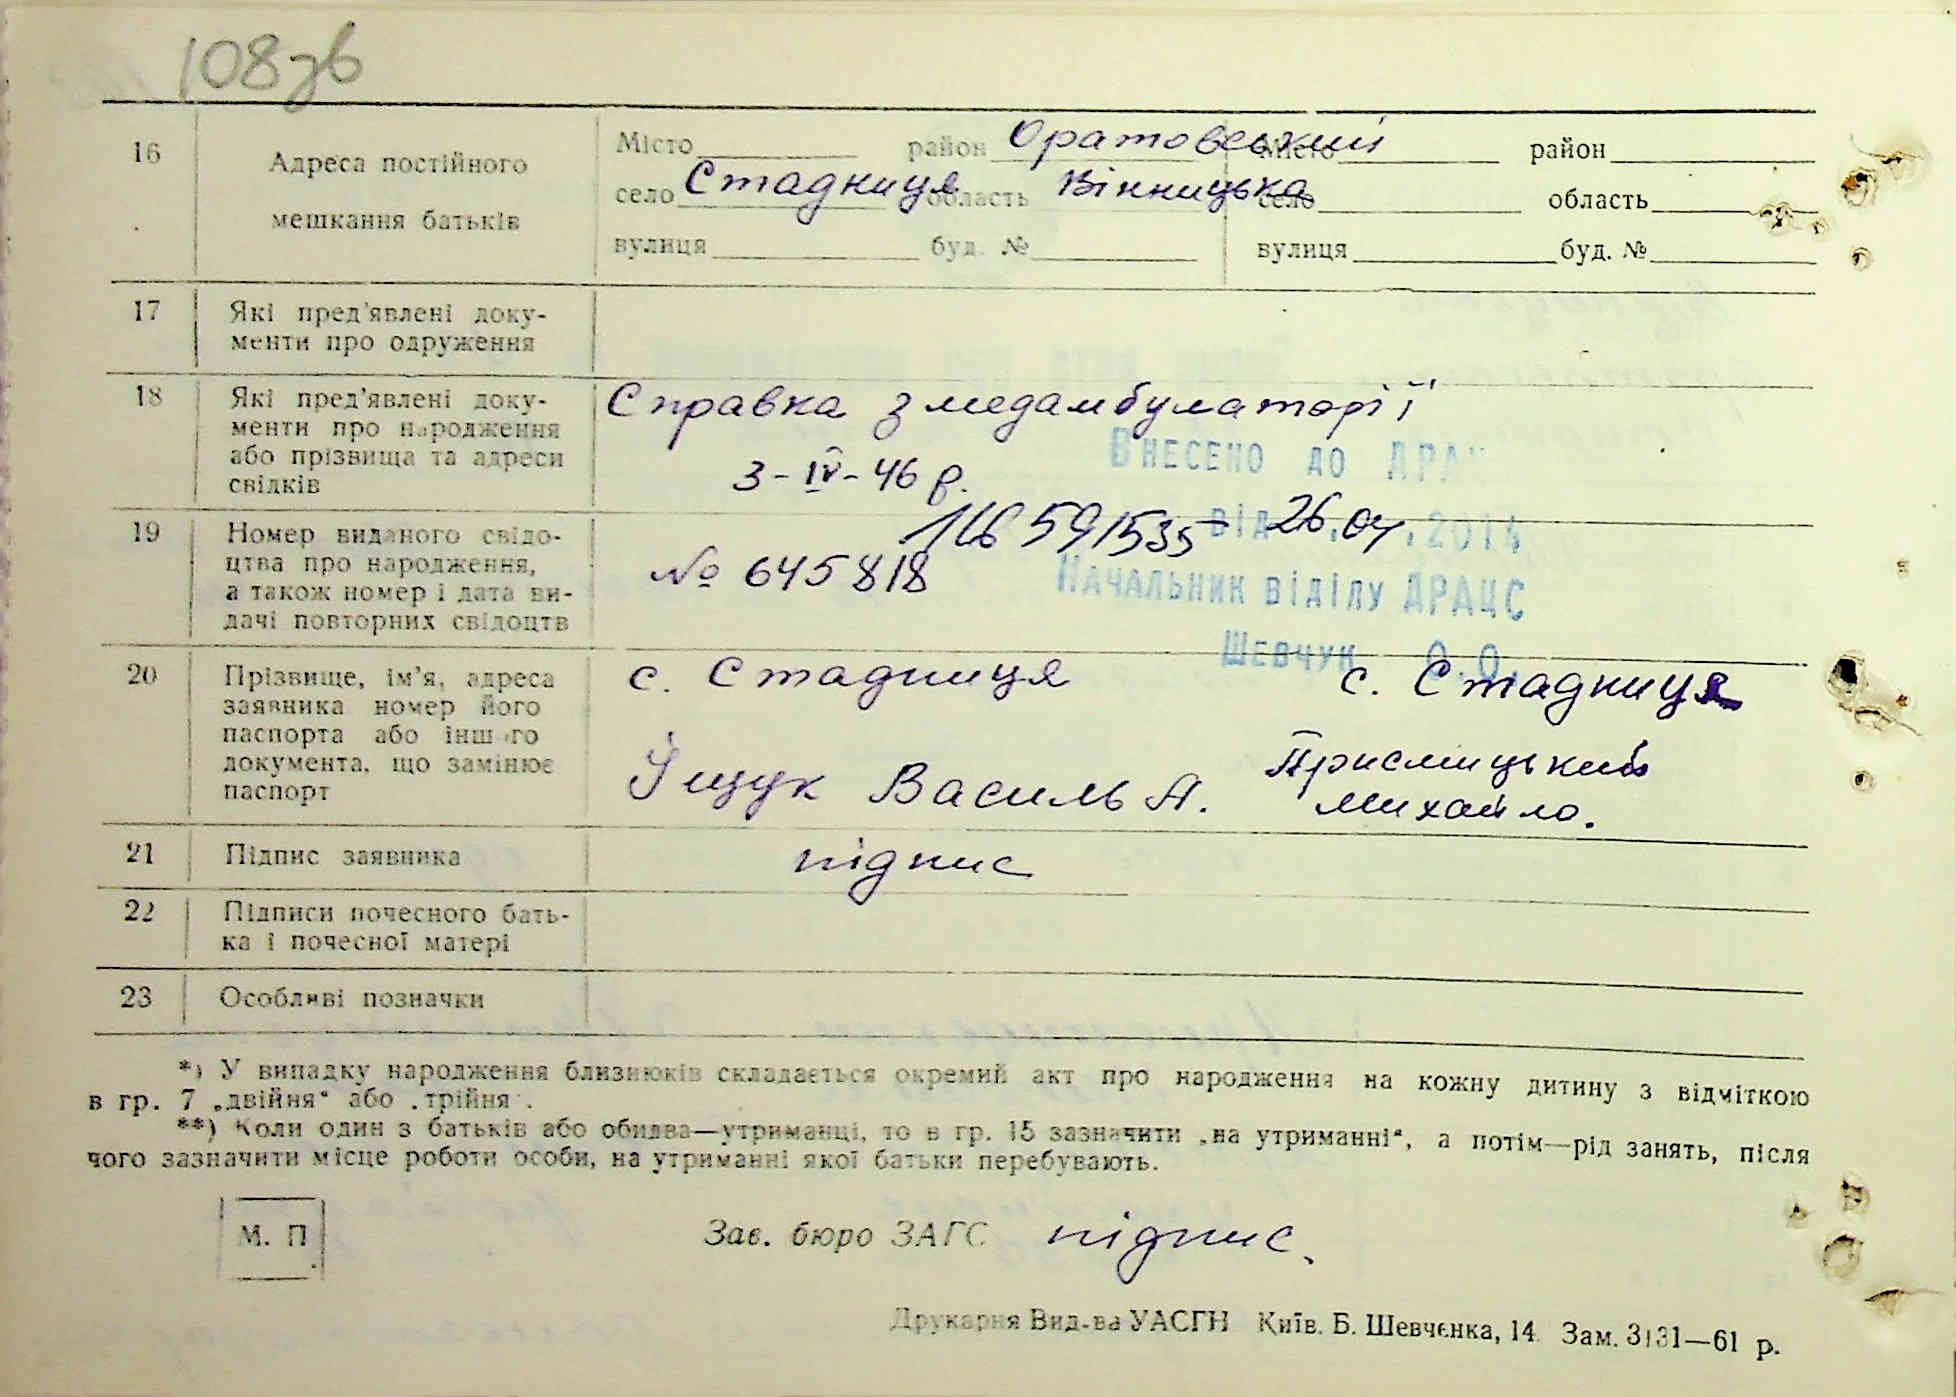 108зв
16 Адреса постійного мешкання батьків
Місто район Оратовський Місто район
село Стадниця область Вінницька село область
вулиця буд. № вулиця буд. №
17 Які пред'явлені доку-
менти про одруження
18 Які пред'явлені доку-
менти про народження
або прізвища та адреси
свідків
Справка з медамбулаторії
3-IV-46 р.
Внесено до ДРАЦ
від 26.04.2014
Начальник відділу ДРАЦС
Шевчук О.О.
19 Номер виданого свідо-
цтва про народження,
а також номер і дата ви-
дачі повторних свідоцтв
№ 645818
20 Прізвище, ім'я, адреса
заявника номер його
паспорта або іншого
документа, що замінює
паспорт
с. Стадниця с. Стадниця
Іщук Василь А.
Михайло.
21 Підпис заявника підпис
22 Підписи почесного бать-
ка і почесної матері
23 Особливі позначки
*) У випадку народження близнюків складається окремий акт про народження на кожну дитину з відміткою
в гр. 7 „двійня" або „трійня".
**) Коли один з батьків або обидва—утриманці, то в гр. 15 зазначити „на утриманні", а потім—рід занять, після
чого зазначити місце роботи особи, на утриманні якої батьки перебувають.
М. П
Зав. бюро ЗАГС підпис.
Друкарня Вид-ва УАСГН Київ. Б. Шевченка, 14 Зам. 3131—61 р.